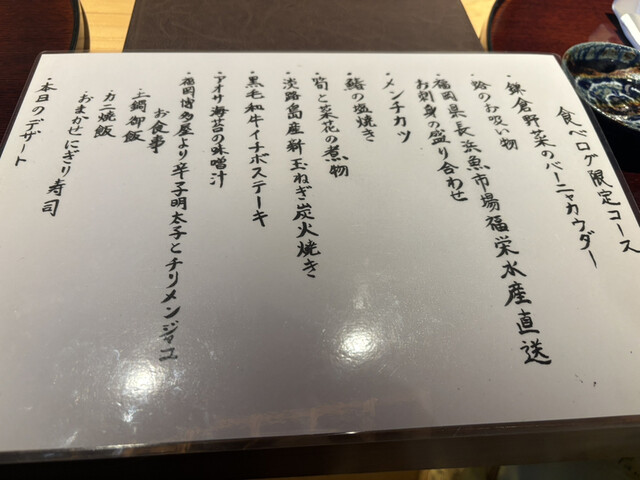 食べログ限定コース
・鎌倉野菜のバーニャカウダー
・蛤のお吸い物
・福岡県長浜魚市場福栄水産直送
お刺身の盛り合わせ
・メンチカツ
・鰆の塩焼き
・筍と菜花の煮物
・淡路島産新玉ねぎ炭火焼き
・黒毛和牛イチボステーキ
・アオサ海苔の味噌汁
・福岡博多屋より辛子明太子とチリメンジャコ
お食事
土鍋御飯
カニ焼飯
おまかせにぎり寿司
・本日のデザート